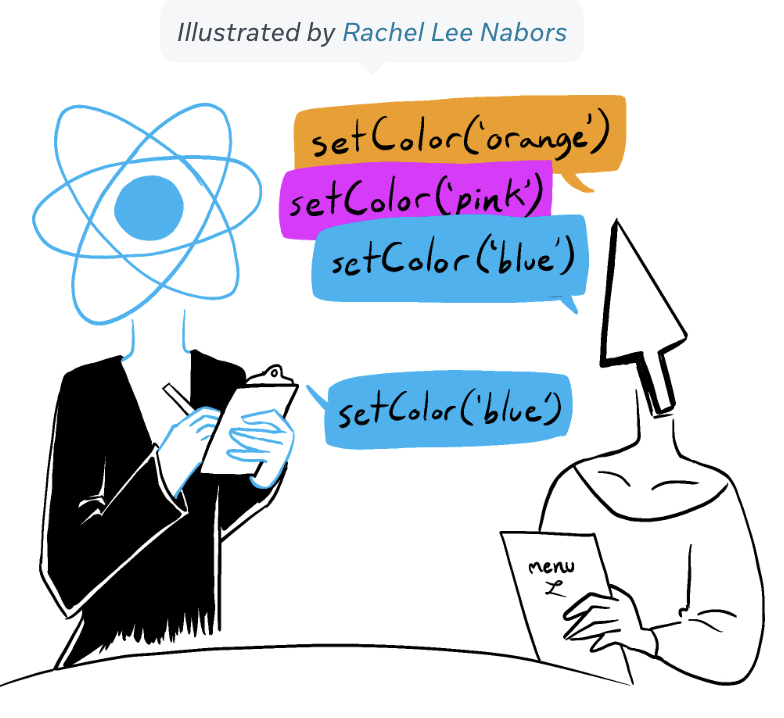 Illustrated by Rachel Lee Nabors
setColor('orange')
setColor('pink')
setColor('blue')
setColor('blue')
menu